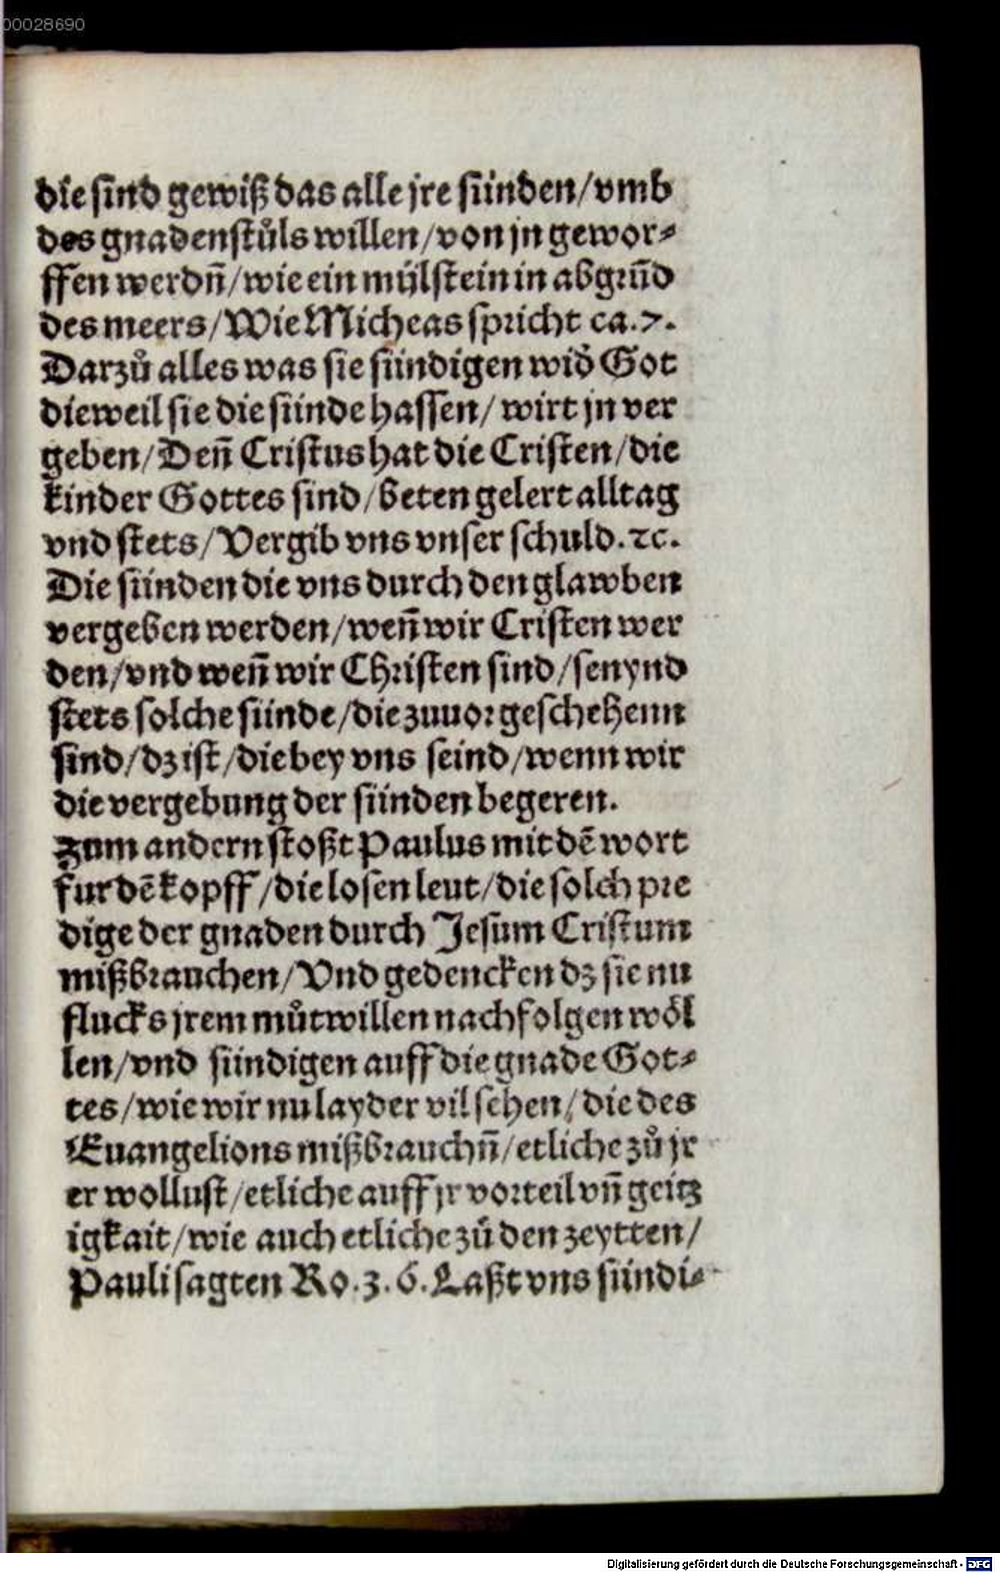 00028690
die sind gewiß das alle jre sünden/vmb
des gnadenstůls willen/von jn gewor⸗
ffen werdn̄/wie ein mülstein in abgrūd
des meers/Wie Micheas spricht ca.7.
Darzů alles was sie sündigen wid̕ Got
dieweil sie die sünde hassen/ wirt jn ver
geben/Den̄ Cristus hat die Cristen/die
kinder Gottes sind/beten gelert alltag
vnd stets/Vergib vns vnser schuld.ꝛc.
Die sünden die vns durch den glawben
vergeben werden/wen̄ wir Cristen wer
den/vnd wen̄ wir Christen sind/senynd
stets solche sünde/die zuuor geschehenn
sind/dz ist/die bey vns seind/wenn wir
die vergebung der sünden begeren.
Zum andern stoßt Paulus mit dē wort
fur dē kopff/die losen leut/die solch pre
dige der gnaden durch Jesum Cristum
mißbrauchen/Vnd gedencken dz sie nu
flucks jrem můtwillen nachfolgen wöl
len/vnd sündigen auff die gnade Got⸗
tes/wie wir nu layder vil sehen/die des
Euangelions mißbrauchn̄/etliche zů jr
er wollust/etliche auff jr vorteil vn̄ geitz
igkait/wie auch etliche zů den zeytten/
Pauli sagten Ro.3.6.Laßt vns sündi⸗
Digitalisierung gefördert durch die Deutsche Forschungsgemeinschaft - DFG